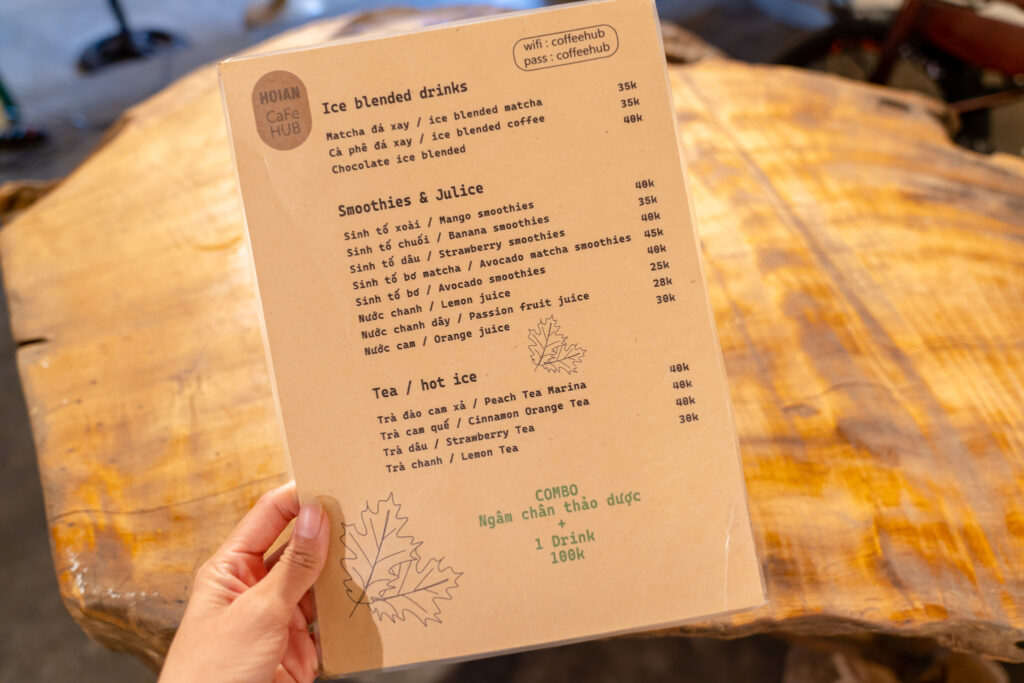 wifi : coffeehub
pass : coffeehub
HOIAN
CaFe
HUB
Ice blended drinks
Matcha đá xay / ice blended matcha 35k
Cà phê đá xay / ice blended coffee 35k
Chocolate ice blended 40k
Smoothies & Julice
Sinh tố xoài / Mango smoothies 40k
Sinh tố chuối / Banana smoothies 35k
Sinh tố dâu / Strawberry smoothies 40k
Sinh tố bơ matcha / Avocado matcha smoothies 45k
Sinh tố bơ / Avocado smoothies 40k
Nước chanh / Lemon juice 25k
Nước chanh dây / Passion fruit juice 28k
Nước cam / Orange juice 30k
Tea / hot ice
Trà đào cam xả / Peach Tea Marina 40k
Trà cam quế / Cinnamon Orange Tea 40k
Trà dâu / Strawberry Tea 40k
Trà chanh / Lemon Tea 30k
COMBO
Ngâm chân thảo dược
+
1 Drink
100k